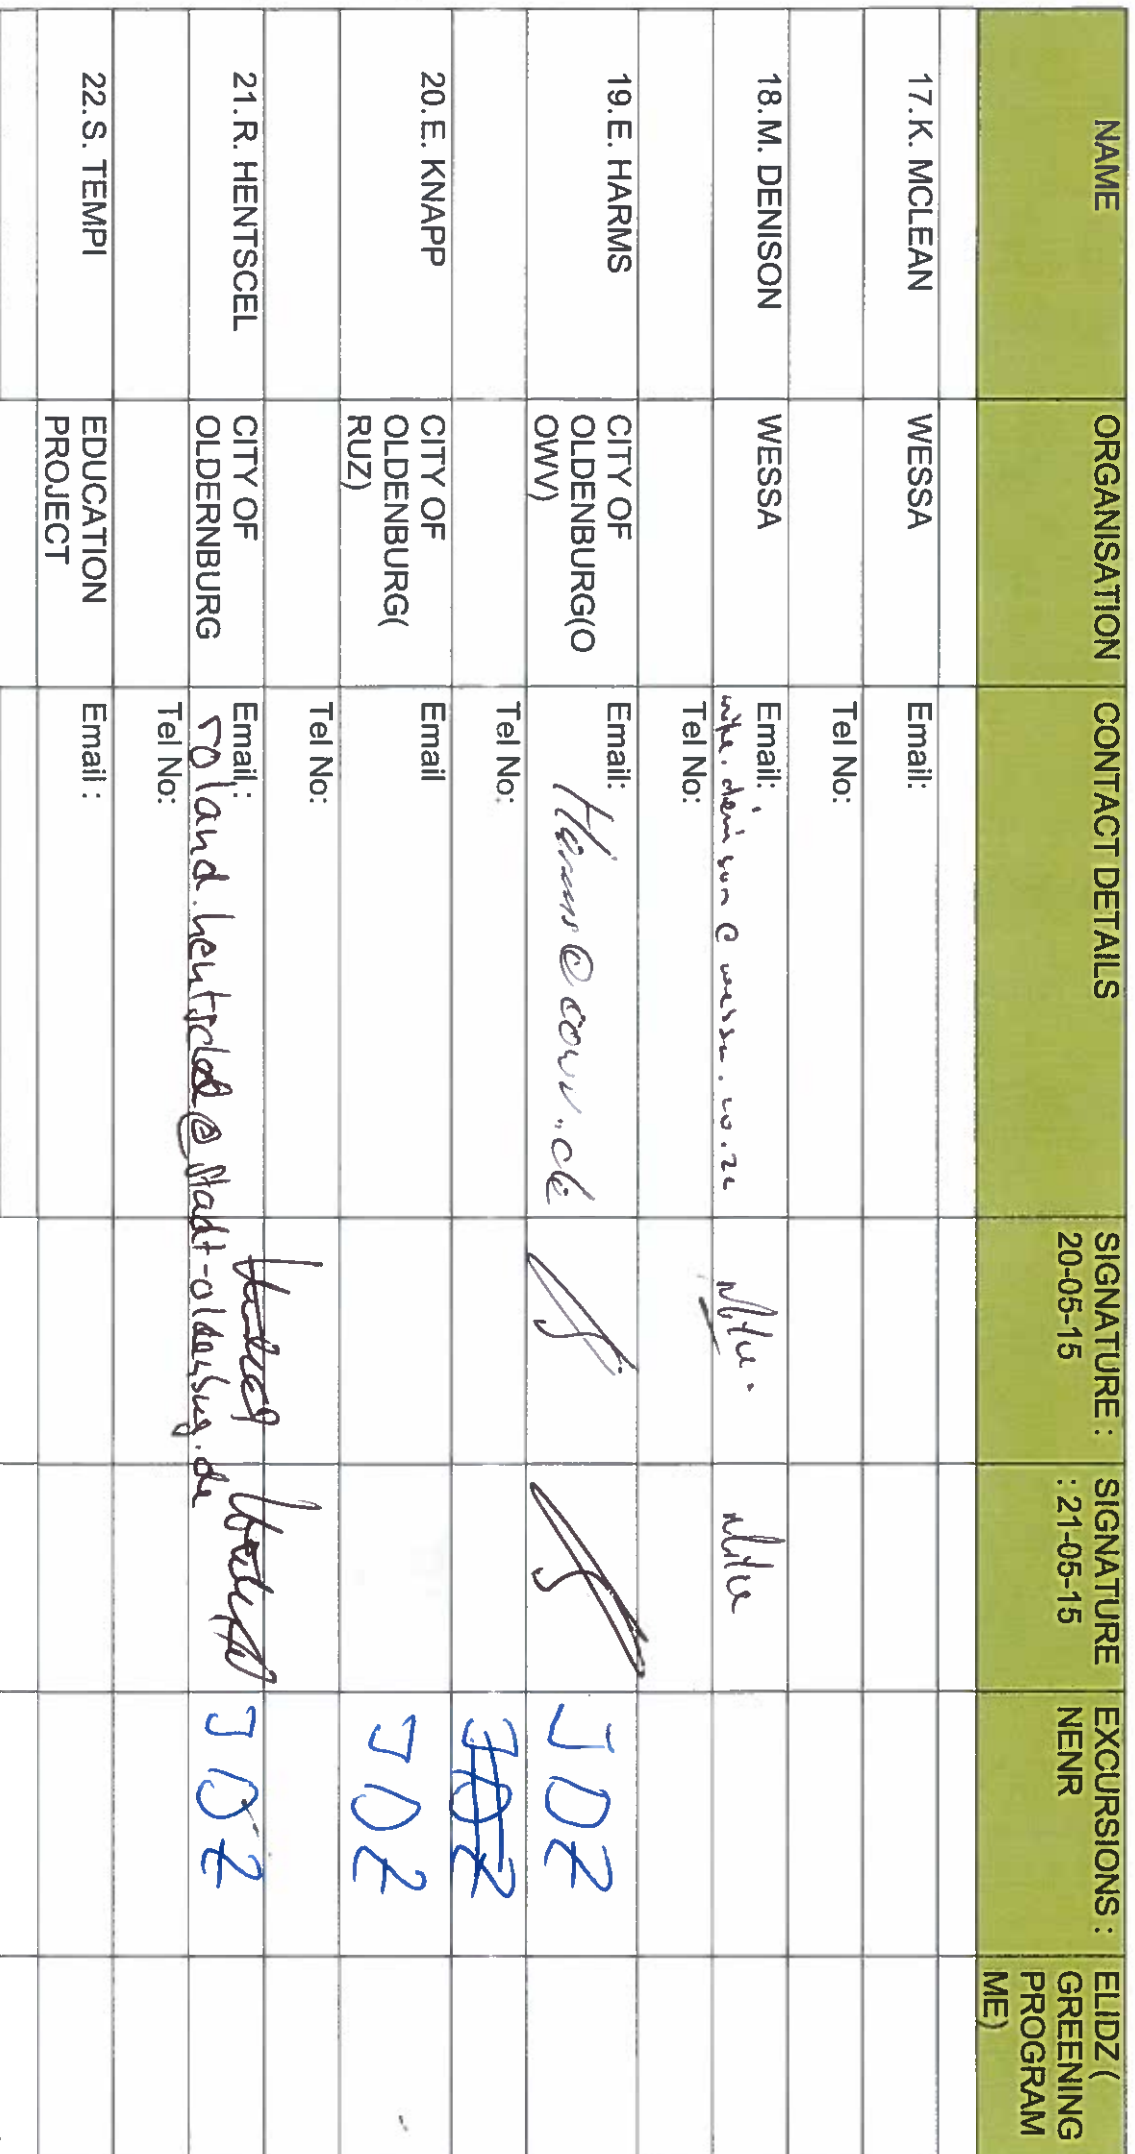 NAME
ORGANISATION
CONTACT DETAILS
SIGNATURE :
20-05-15
SIGNATURE
: 21-05-15
EXCURSIONS :
NENR
ELIDZ (
GREENING
PROGRAM
ME)
17. K. MCLEAN
WESSA
Email:
Tel No:
18. M. DENISON
WESSA
Email:
mike.denison@wessa.co.za
Tel No:
19. E. HARMS
CITY OF
OLDENBURG(O
OWV)
Email:
JDZ
Tel No:
JDZ
20. E. KNAPP
CITY OF
OLDENBURG(
RUZ)
Email
JDZ
Tel No:
21. R. HENTSCEL
CITY OF
OLDERNBURG
Email:
roland.hentschel@stadt-oldenburg.de
JDZ
Tel No:
22. S. TEMPI
EDUCATION
PROJECT
Email :